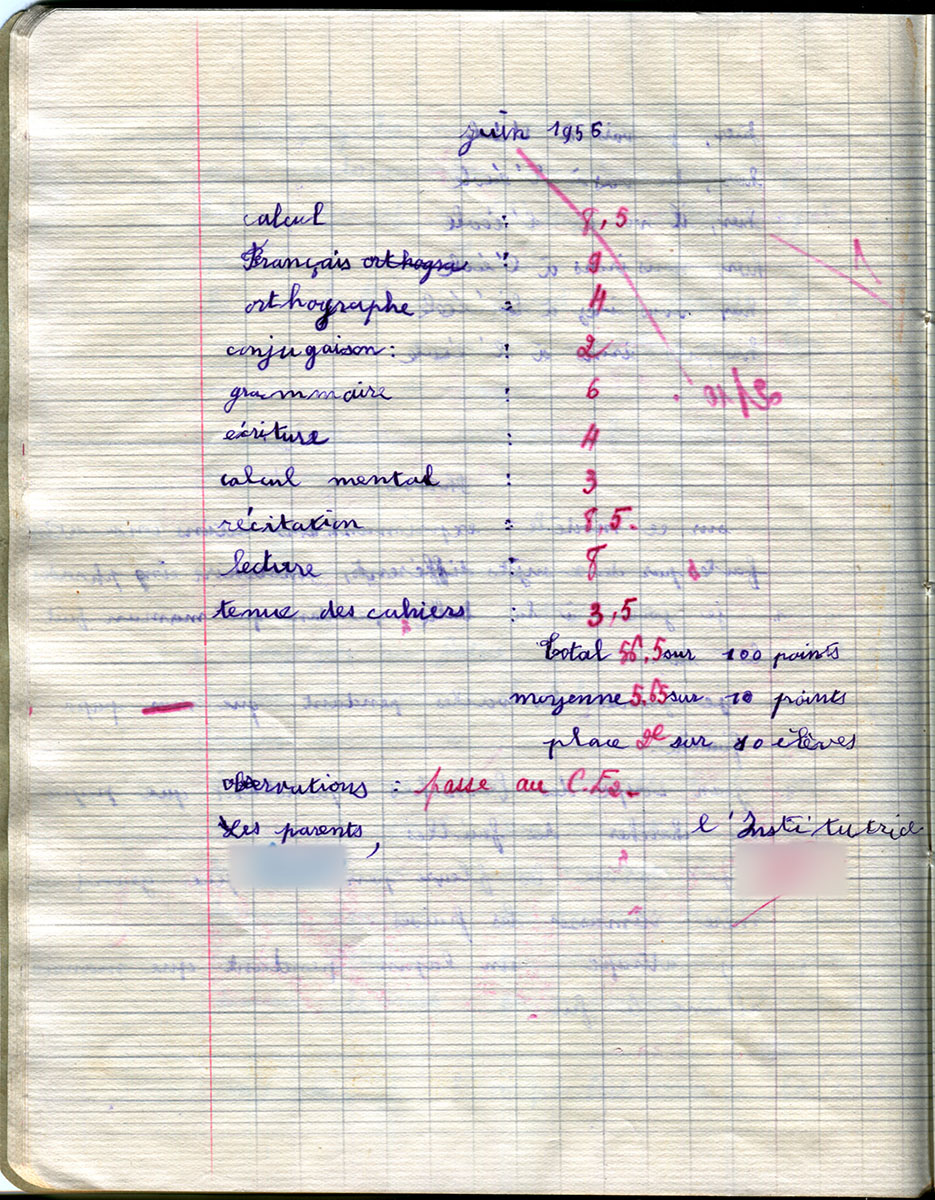 juin 1956
calcul : 8,5
Français orthogra : 9
orthographe : 4
conjugaison : : 2
grammaire : 6
écriture : 4
calcul mental : 3
récitation : 8,5.
lecture : 8
tenue des cahiers : 3,5
Total 56,5 sur 100 points
moyenne 5,65 sur 10 points
place 2e sur 10 élèves
observations : passe au C.E2.
Les parents, l'Institutric